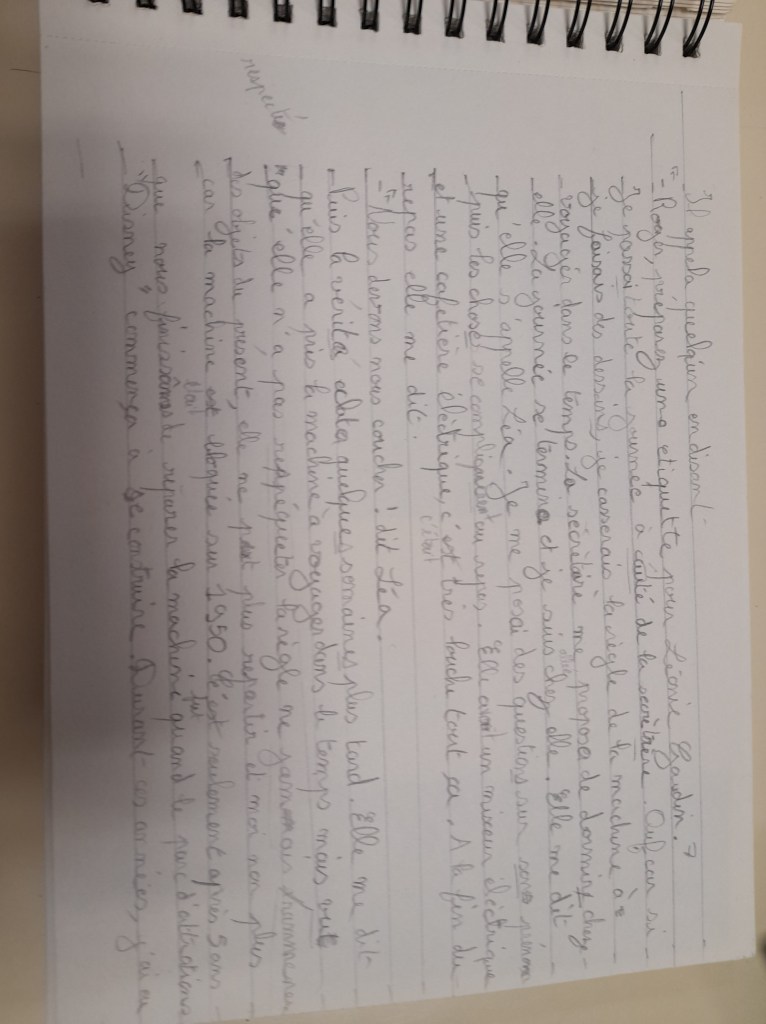 Il appela quelqu'un en disant
"- Roger, préparez une étiquette pour Léonie Gaudin."
Je passai toute la journée à coité de la secrétaire. Ouf car si
je faisais des dessins, je casserais la règle de la machine à
voyager dans le temps. La secrétaire me proposa de dormire chez
elle. La journée se termina et je suis chez elle. Elle me dit
qu'elle s'appelle Léa. Je me posai des questions sur son prénom
puis les chose se compliquèrent au repas. Elle avait un mixeur éléctrique
et une cafetière éléctrique, c'est très louche tout ça. A la fin du
c'était
repas elle me dit.
"- Nous devrons nous coucher! dit Léa.
Puis la vérité éclata quelques semaines plus tard. Elle me dit
qu'elle a pris la machine à voyager dans le temps mais
que elle n'a pas respéqueter la règle ne jammais rammener
respecté
des objets du présent, elle ne peut plus repartir et moi non plus
car la machine est bloquée sur 1950. C'est seulement après 5 ans
était fut
que nous de réparer la machine quand le parc d'attractions
"Disney" commença à se contruire. Durant ces années, j'ai eu